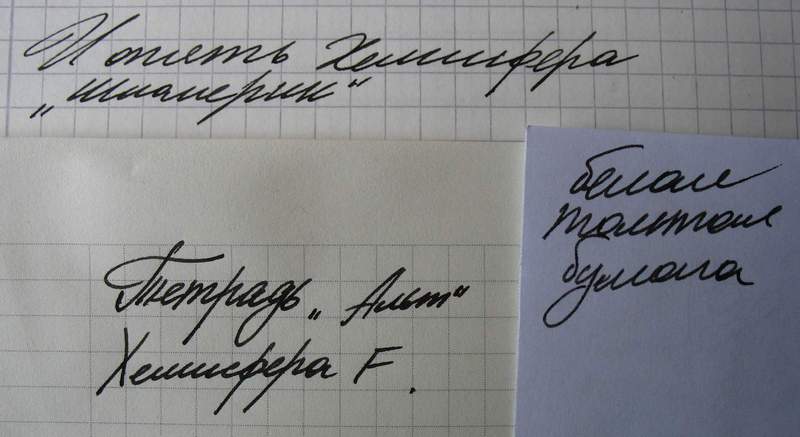 И опять Хемисфера
„Шпалерик“
Тетрадь „Альт“
Хемисфера F.
белая
толстая
бумага